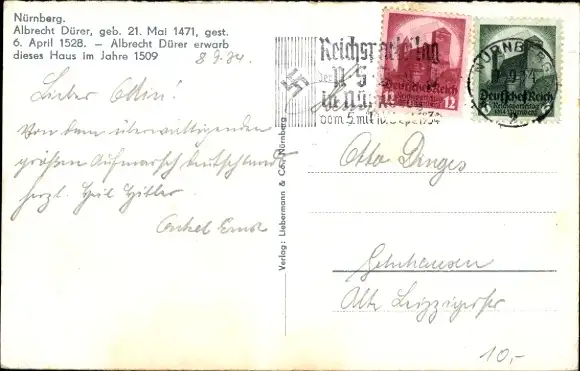 Nürnberg.
Albrecht Dürer, geb. 21. Mai 1471, gest.
6. April 1528. – Albrecht Dürer erwarb
dieses Haus im Jahre 1509
8 9.34.
Lieber
Von dem überwältigenden
großen Aufmarsch Deutschlands
herzl. Heil Hitler
Onkel Ernst
Verlag: Liebermann & Co., Nürnberg
Reichsparteitag
der
N S
in Nürnberg
vom 5. mit 10. Sept. 1934
Deutsches Reich
Reichsparteitag
12
NÜRNBERG
9.34
Deutsches Reich
Reichsparteitag
1934 Nürnberg
Otto Dinges
Gelnhausen
Alte Leipzigerstr
10,-